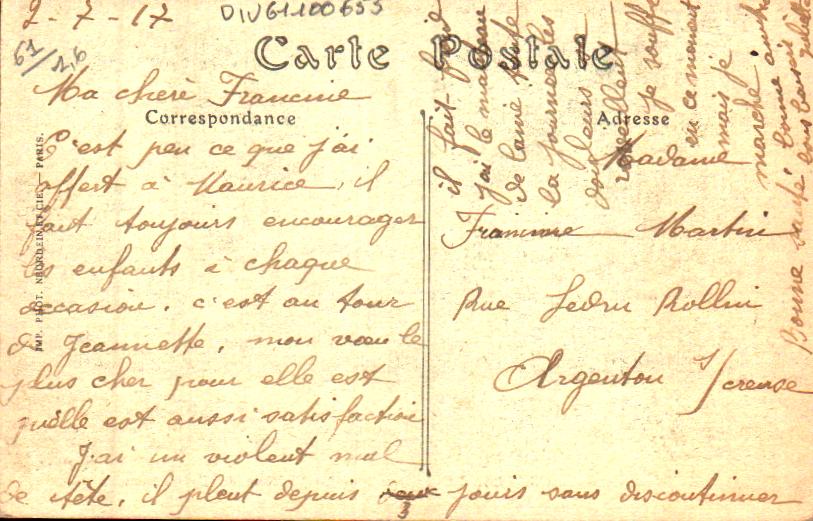 2-7-17
DIV61100655
61/26
Carte Postale
Correspondance
Adresse
Ma chère Francine
C'est peu ce que j'ai
offert à Maurice, il
faut toujours encourager
les enfants à chaque
occasion. c'est au tour
de Jeannette, mon vœu le
plus cher pour elle est
qu'elle est aussi satisfaction
J'ai un violent mal
de tête, il pleut depuis deux 3 jours sans discontinuer
il fait froid
j'ai le manteau
de laine toute
la journée les
douleurs
réveillent
je souffre
en ce moment
mais je
marche
Bonne santé bonne
Madame
Francine Martin
Rue Ledru Rollin
Argenton s/creuse
IMP. PHOT. NEURDEIN ET CIE. — PARIS.